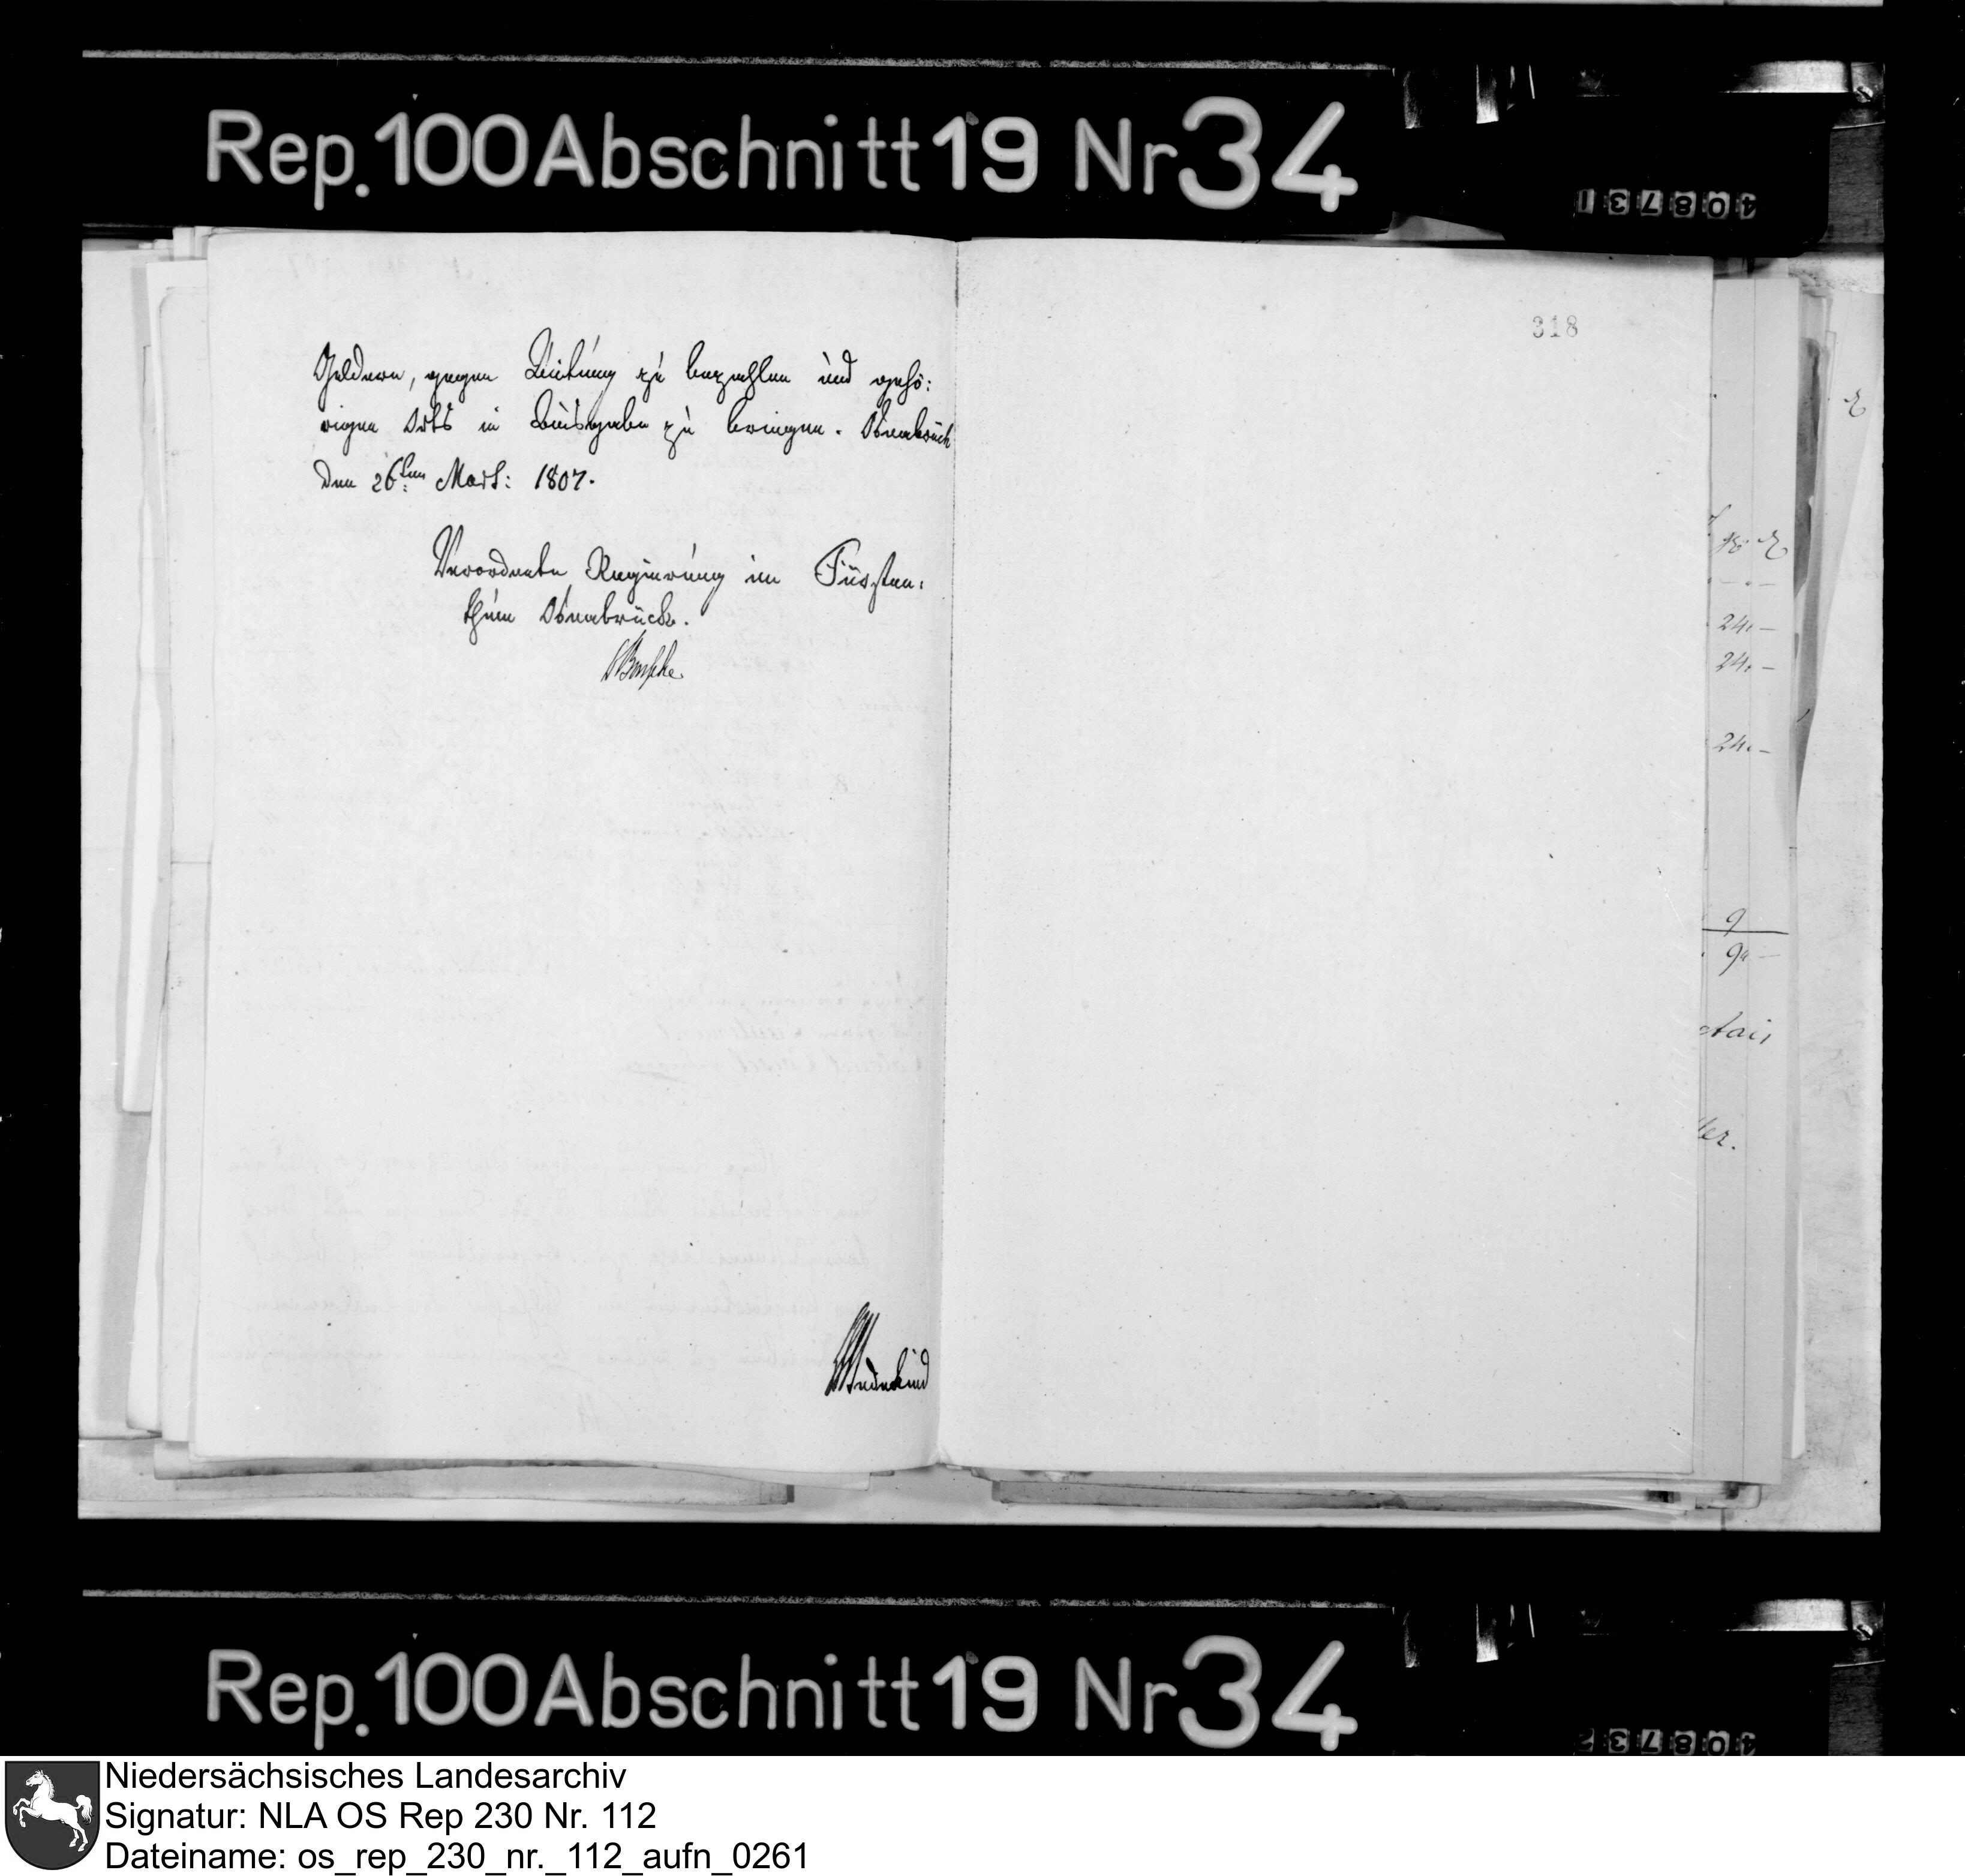 Rep. 100 Abschnitt 19 Nr 34
408731
318
Geldern, gegen Quitung zu bezahlen und gehö:
rigen Orts in Ausgabe zu bringen. Osnabrück
den 26ten Mart: 1807.
Verordnete Regierung im Fürsten:
thum Osnabrück.
24.-
24.-
24.-
9
9
Wedekind
Rep. 100 Abschnitt 19 Nr 34
408732
Niedersächsisches Landesarchiv
Signatur: NLA OS Rep 230 Nr. 112
Dateiname: os_rep_230_nr._112_aufn_0261